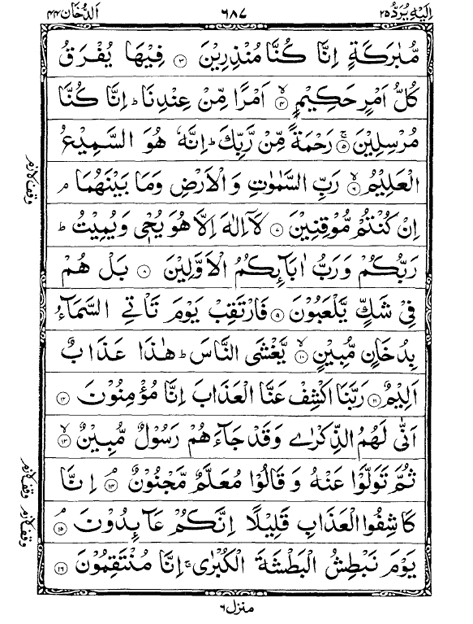 اليه يرد ٢٥ ٦٨٧ الدخان ٤٤
مُّبٰرَكَةٍ اِنَّا كُنَّا مُنْذِرِيْنَ ۝٣ فِيْهَا يُفْرَقُ
كُلُّ اَمْرٍ حَكِيْمٍ ۙ۝٤ اَمْرًا مِّنْ عِنْدِنَا ؕ اِنَّا كُنَّا
مُرْسِلِيْنَ ۚ۝٥ رَحْمَةً مِّنْ رَّبِّكَ ؕ اِنَّهٗ هُوَ السَّمِيْعُ
الْعَلِيْمُ ۙ۝٦ رَبِّ السَّمٰوٰتِ وَالْاَرْضِ وَمَا بَيْنَهُمَا ۘ
اِنْ كُنْتُمْ مُّوْقِنِيْنَ ۝٧ لَاۤ اِلٰهَ اِلَّا هُوَ يُحْيٖ وَيُمِيْتُ ؕ
رَبُّكُمْ وَرَبُّ اٰبَآىِٕكُمُ الْاَوَّلِيْنَ ۝٨ بَلْ هُمْ
فِيْ شَكٍّ يَّلْعَبُوْنَ ۝٩ فَارْتَقِبْ يَوْمَ تَاْتِي السَّمَآءُ
بِدُخَانٍ مُّبِيْنٍ ۙ۝١٠ يَّغْشَى النَّاسَ ؕ هٰذَا عَذَابٌ
اَلِيْمٌ ۝١١ رَبَّنَا اكْشِفْ عَنَّا الْعَذَابَ اِنَّا مُؤْمِنُوْنَ ۝١٢
اَنّٰى لَهُمُ الذِّكْرٰى وَقَدْ جَآءَهُمْ رَسُوْلٌ مُّبِيْنٌ ۙ۝١٣
ثُمَّ تَوَلَّوْا عَنْهُ وَقَالُوْا مُعَلَّمٌ مَّجْنُوْنٌ ۘ۝١٤ اِنَّا
كَاشِفُوا الْعَذَابِ قَلِيْلًا اِنَّكُمْ عَآىِٕدُوْنَ ۘ۝١٥
يَوْمَ نَبْطِشُ الْبَطْشَةَ الْكُبْرٰى ۚ اِنَّا مُنْتَقِمُوْنَ ۝١٦
وقف لازم
وقف لازم وقف لازم
منزل ٦